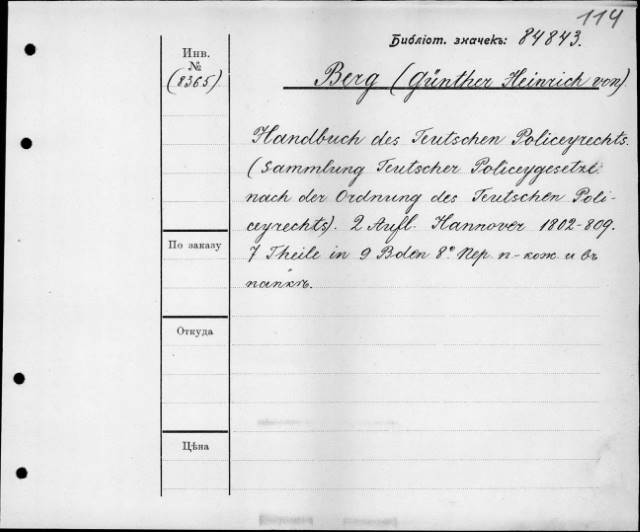 114
Библіот. значекъ: 84843.
Инв.
№
(8365)
Berg (Günther Heinrich von)
Handbuch des Teutschen Policeyrechts.
(Sammlung Teutscher Policeygesetze
nach der Ordnung des Teutschen Poli-
ceyrechts). 2 Aufl. Hannover 1802-809.
7 Theile in 9 Bden 8º Пер. п-кож. и въ
папкѣ.
По заказу
Откуда
Цѣна